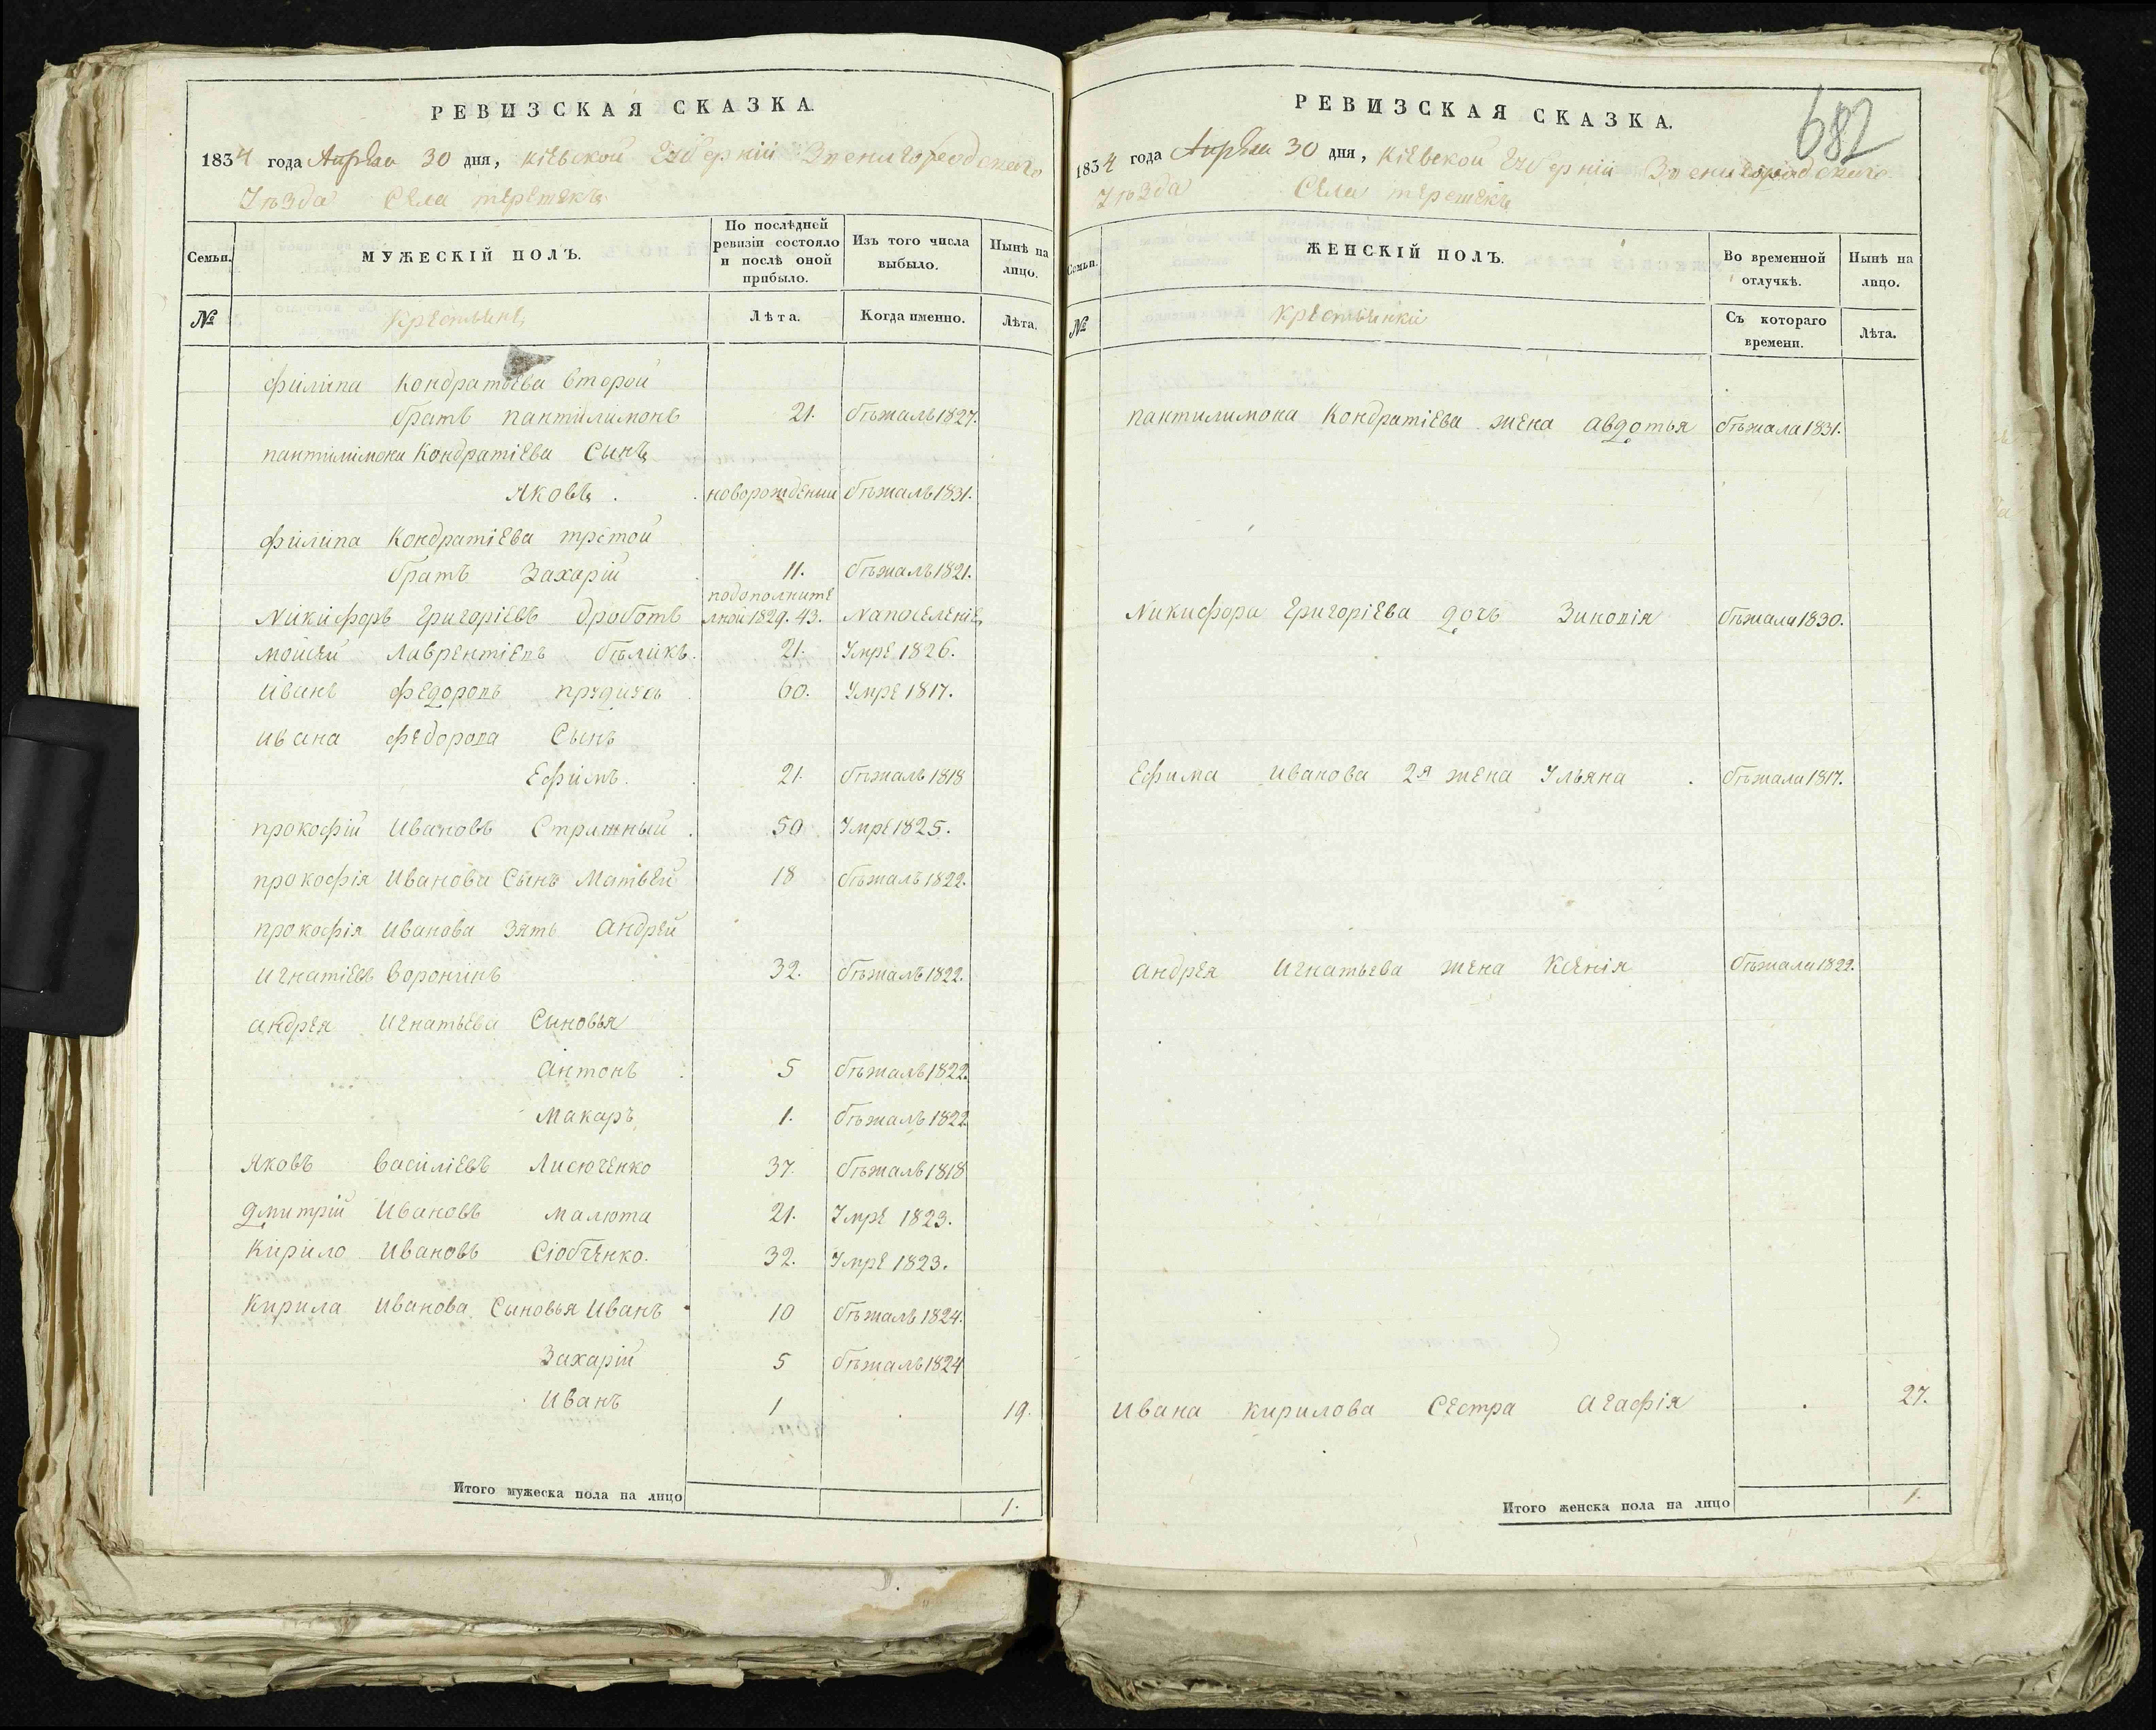 РЕВИЗСКАЯ СКАЗКА.
1834 года Апреля 30 дня, Кіевской Губерніи Звенигородскаго
Уѣзда Села терешекъ
Семьи.
МУЖЕСКІЙ ПОЛЪ.
По послѣдней ревизіи состояло и послѣ оной прибыло.
Изъ того числа выбыло.
Нынѣ на лицо.
№
Крестьянъ
Лѣта.
Когда именно.
Лѣта.
филипа Кондратіева второй
братъ пантилимонъ 21. бѣжалъ 1827.
пантилимона Кондратіева Сынъ
яковъ новорожденны бѣжалъ 1831.
филипа Кондратіева третой
братъ Захарій 11. бѣжалъ 1821.
Никифоръ Григоріевъ дроботъ подополните лной 1829. 43. Напоселеніе
мойсей лаврентіевъ бѣликъ. 21. Умре 1826.
иванъ федоровъ 60. Умре 1817.
ивана федорова Сынъ
Ефимъ. 21. бѣжалъ 1818
прокофій ивановъ Стражный 50 Умре 1825.
прокофія Иванова Сынъ Матвей 18 бѣжалъ 1822.
прокофія иванова зять андрей
игнатіевъ воронинъ 32. бѣжалъ 1822.
андрея игнатьева Сыновья
антонъ 5 бѣжалъ 1822.
макаръ 1. бѣжалъ 1822
яковъ василіевъ Лисюченко 37. бѣжалъ 1818
дмитрій Ивановъ малюта 21. Умре 1823.
Кирило Ивановъ Сіобченко. 32. Умре 1823.
Кирила иванова Сыновья Иванъ 10 бѣжалъ 1824.
Захарій 5 бѣжалъ 1824
иванъ 1 19.
Итого мужеска пола на лицо 1.
РЕВИЗСКАЯ СКАЗКА.
682
1834 года Апреля 30 дня, Кіевской Губерніи Звенигородскаго
Уѣзда Села терешекъ
Семьи.
ЖЕНСКІЙ ПОЛЪ.
Во временной отлучкѣ.
Нынѣ на лицо.
№
Крестьянки
Съ котораго времени.
Лѣта.
пантилимона Кондратіева жена авдотья бѣжала 1831.
Никифора Григоріева дочь Зиновія бѣжала 1830.
Ефима иванова 2я жена Ульяна бѣжала 1817.
андрея игнатьева жена Ксенія бѣжала 1822.
ивана кирилова Сестра агафія 27.
Итого женска пола на лицо 1.